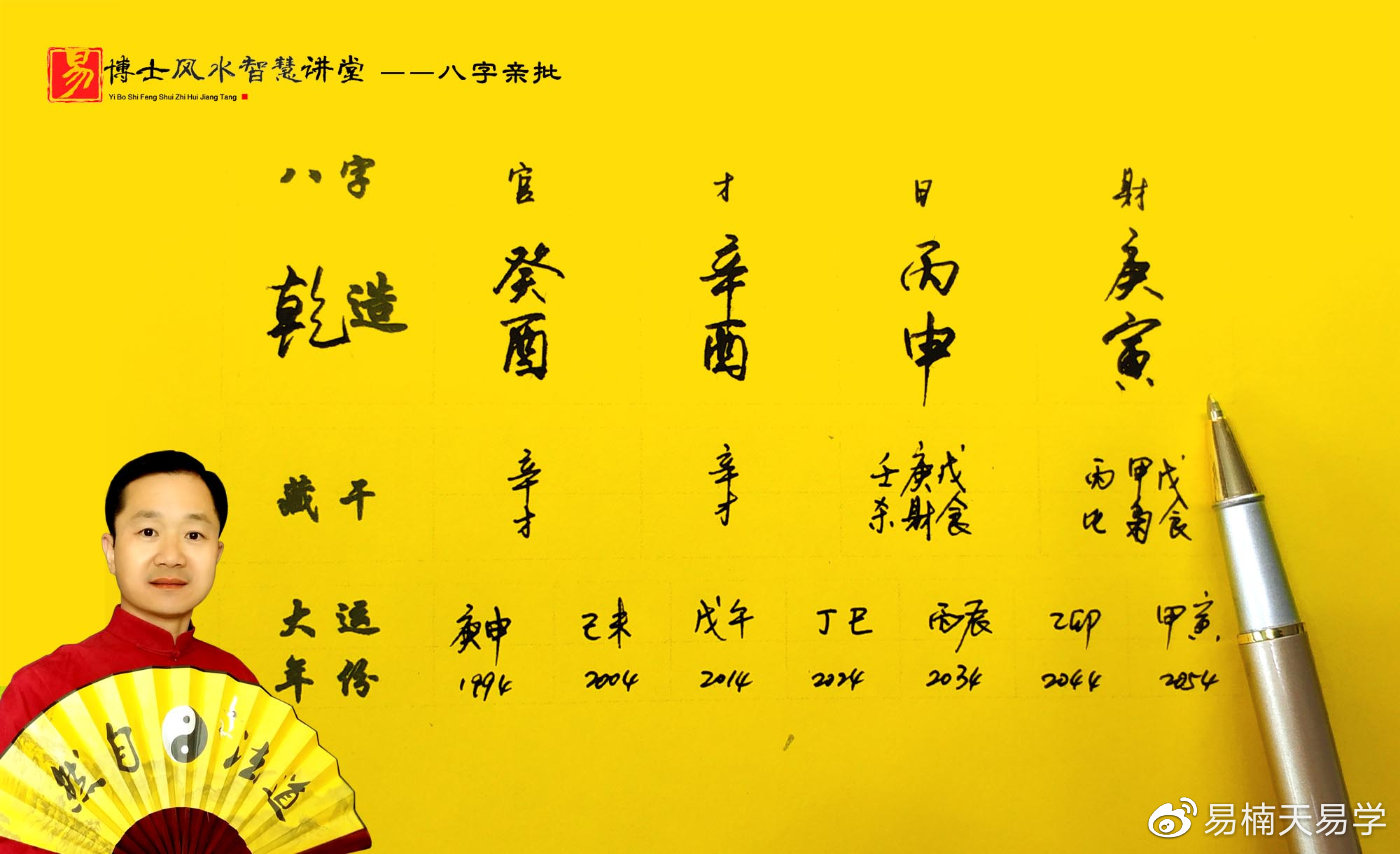 易 博士风水智慧讲堂 ——八字亲批
Yi Bo Shi Feng Shui Zhi Hui Jiang Tang
八字 官 才 日 财
乾造 癸酉 辛酉 丙申 庚寅
藏干 辛 辛 壬庚戊 丙甲戊
才 才 杀财食 比枭食
大运 庚申 己未 戊午 丁巳 丙辰 乙卯 甲寅
年份 1994 2004 2014 2024 2034 2044 2054
然自法道
易楠天易学